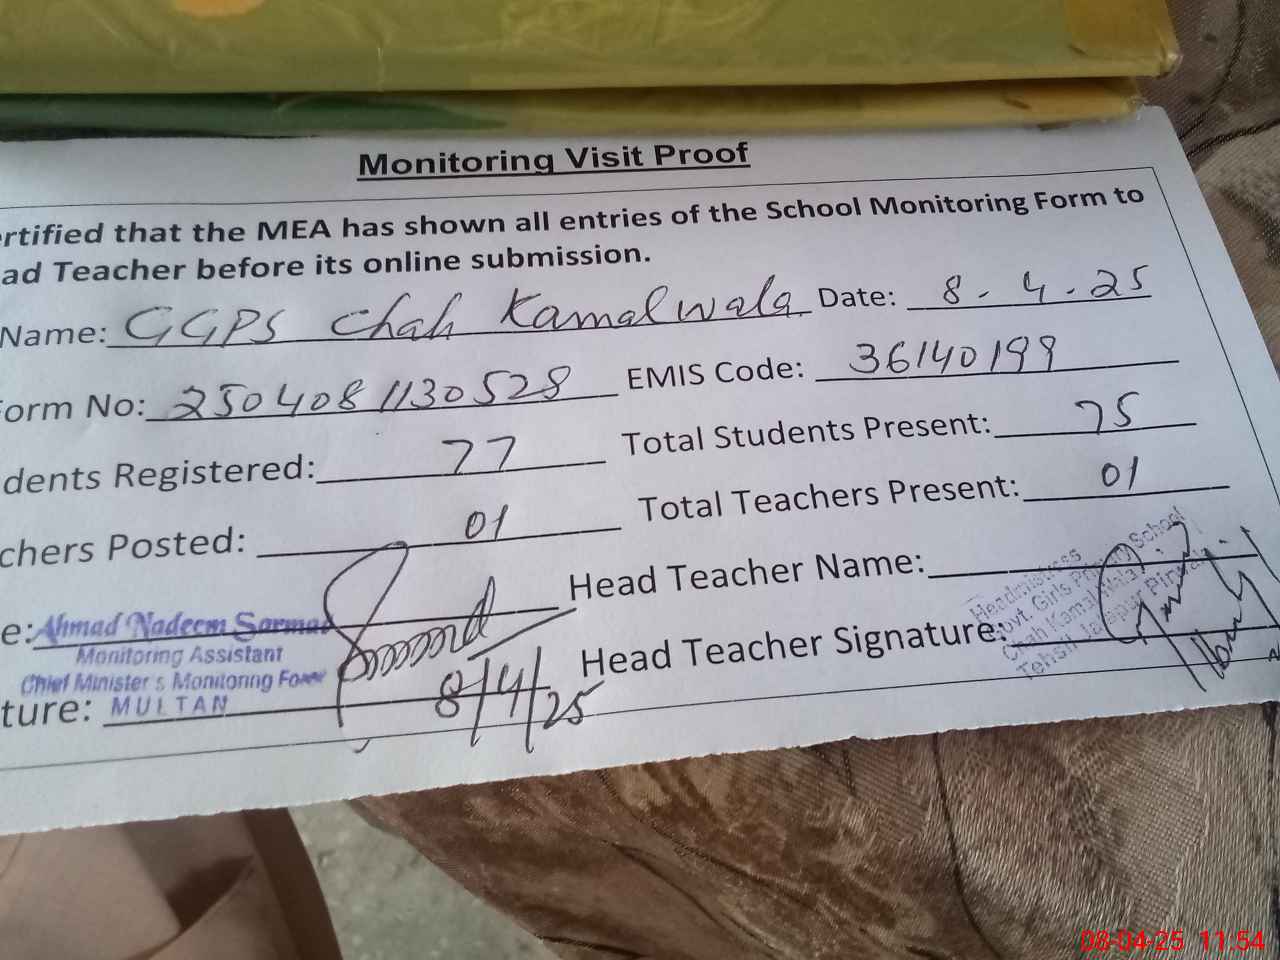 Monitoring Visit Proof
ertified that the MEA has shown all entries of the School Monitoring Form to
ad Teacher before its online submission.
Name: GGPS Chah Kamalwala Date: 8.4.25
Form No: 2504081130528 EMIS Code: 36140199
dents Registered: 77 Total Students Present: 75
chers Posted: 01 Total Teachers Present: 01
e: Ahmad Nadeem Sarmad Head Teacher Name:
Monitoring Assistant
Chief Minister's Monitoring Force
ture: MULTAN 8/4/25 Head Teacher Signature:
Headmistress
Govt. Girls Primary School
Chah Kamal Wala
Tehsil Jalalpur Pirwala
08-04-25 11:54